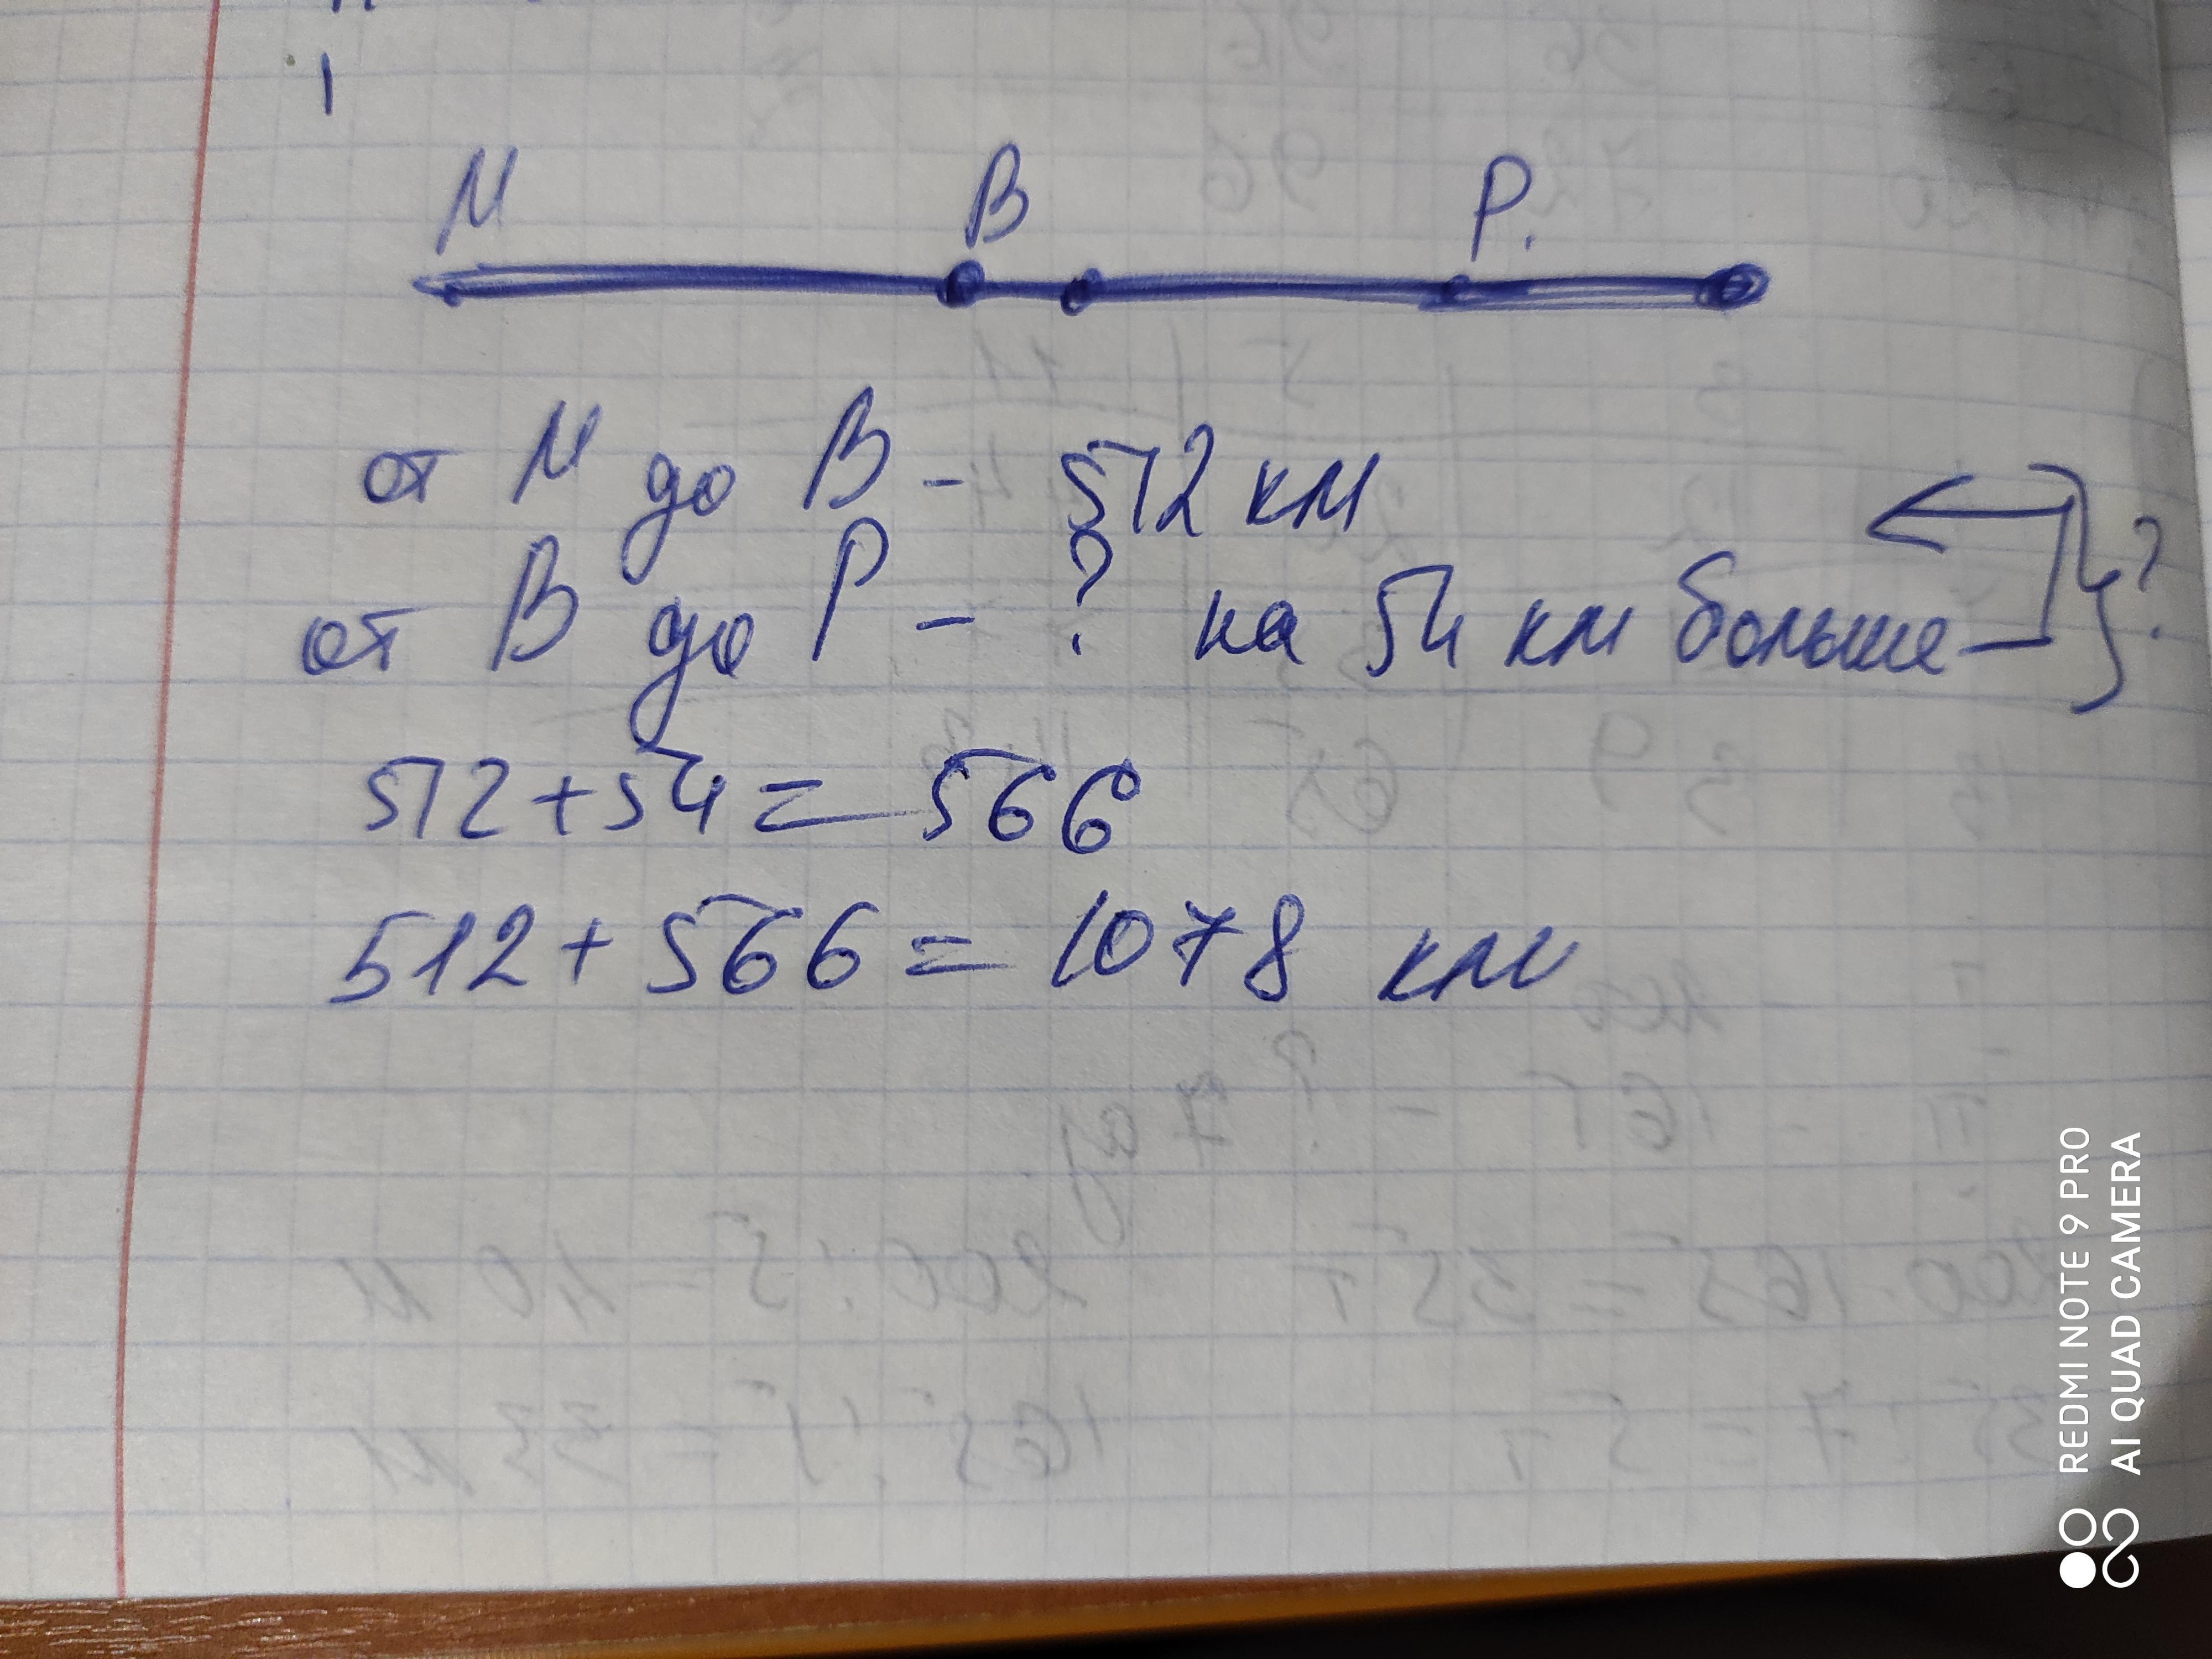 М В Р.
от М до В - 512 км
от В до Р - ? на 54 км больше
?
512+54 = 566
512 + 566 = 1078 км
REDMI NOTE 9 PRO
AI QUAD CAMERA